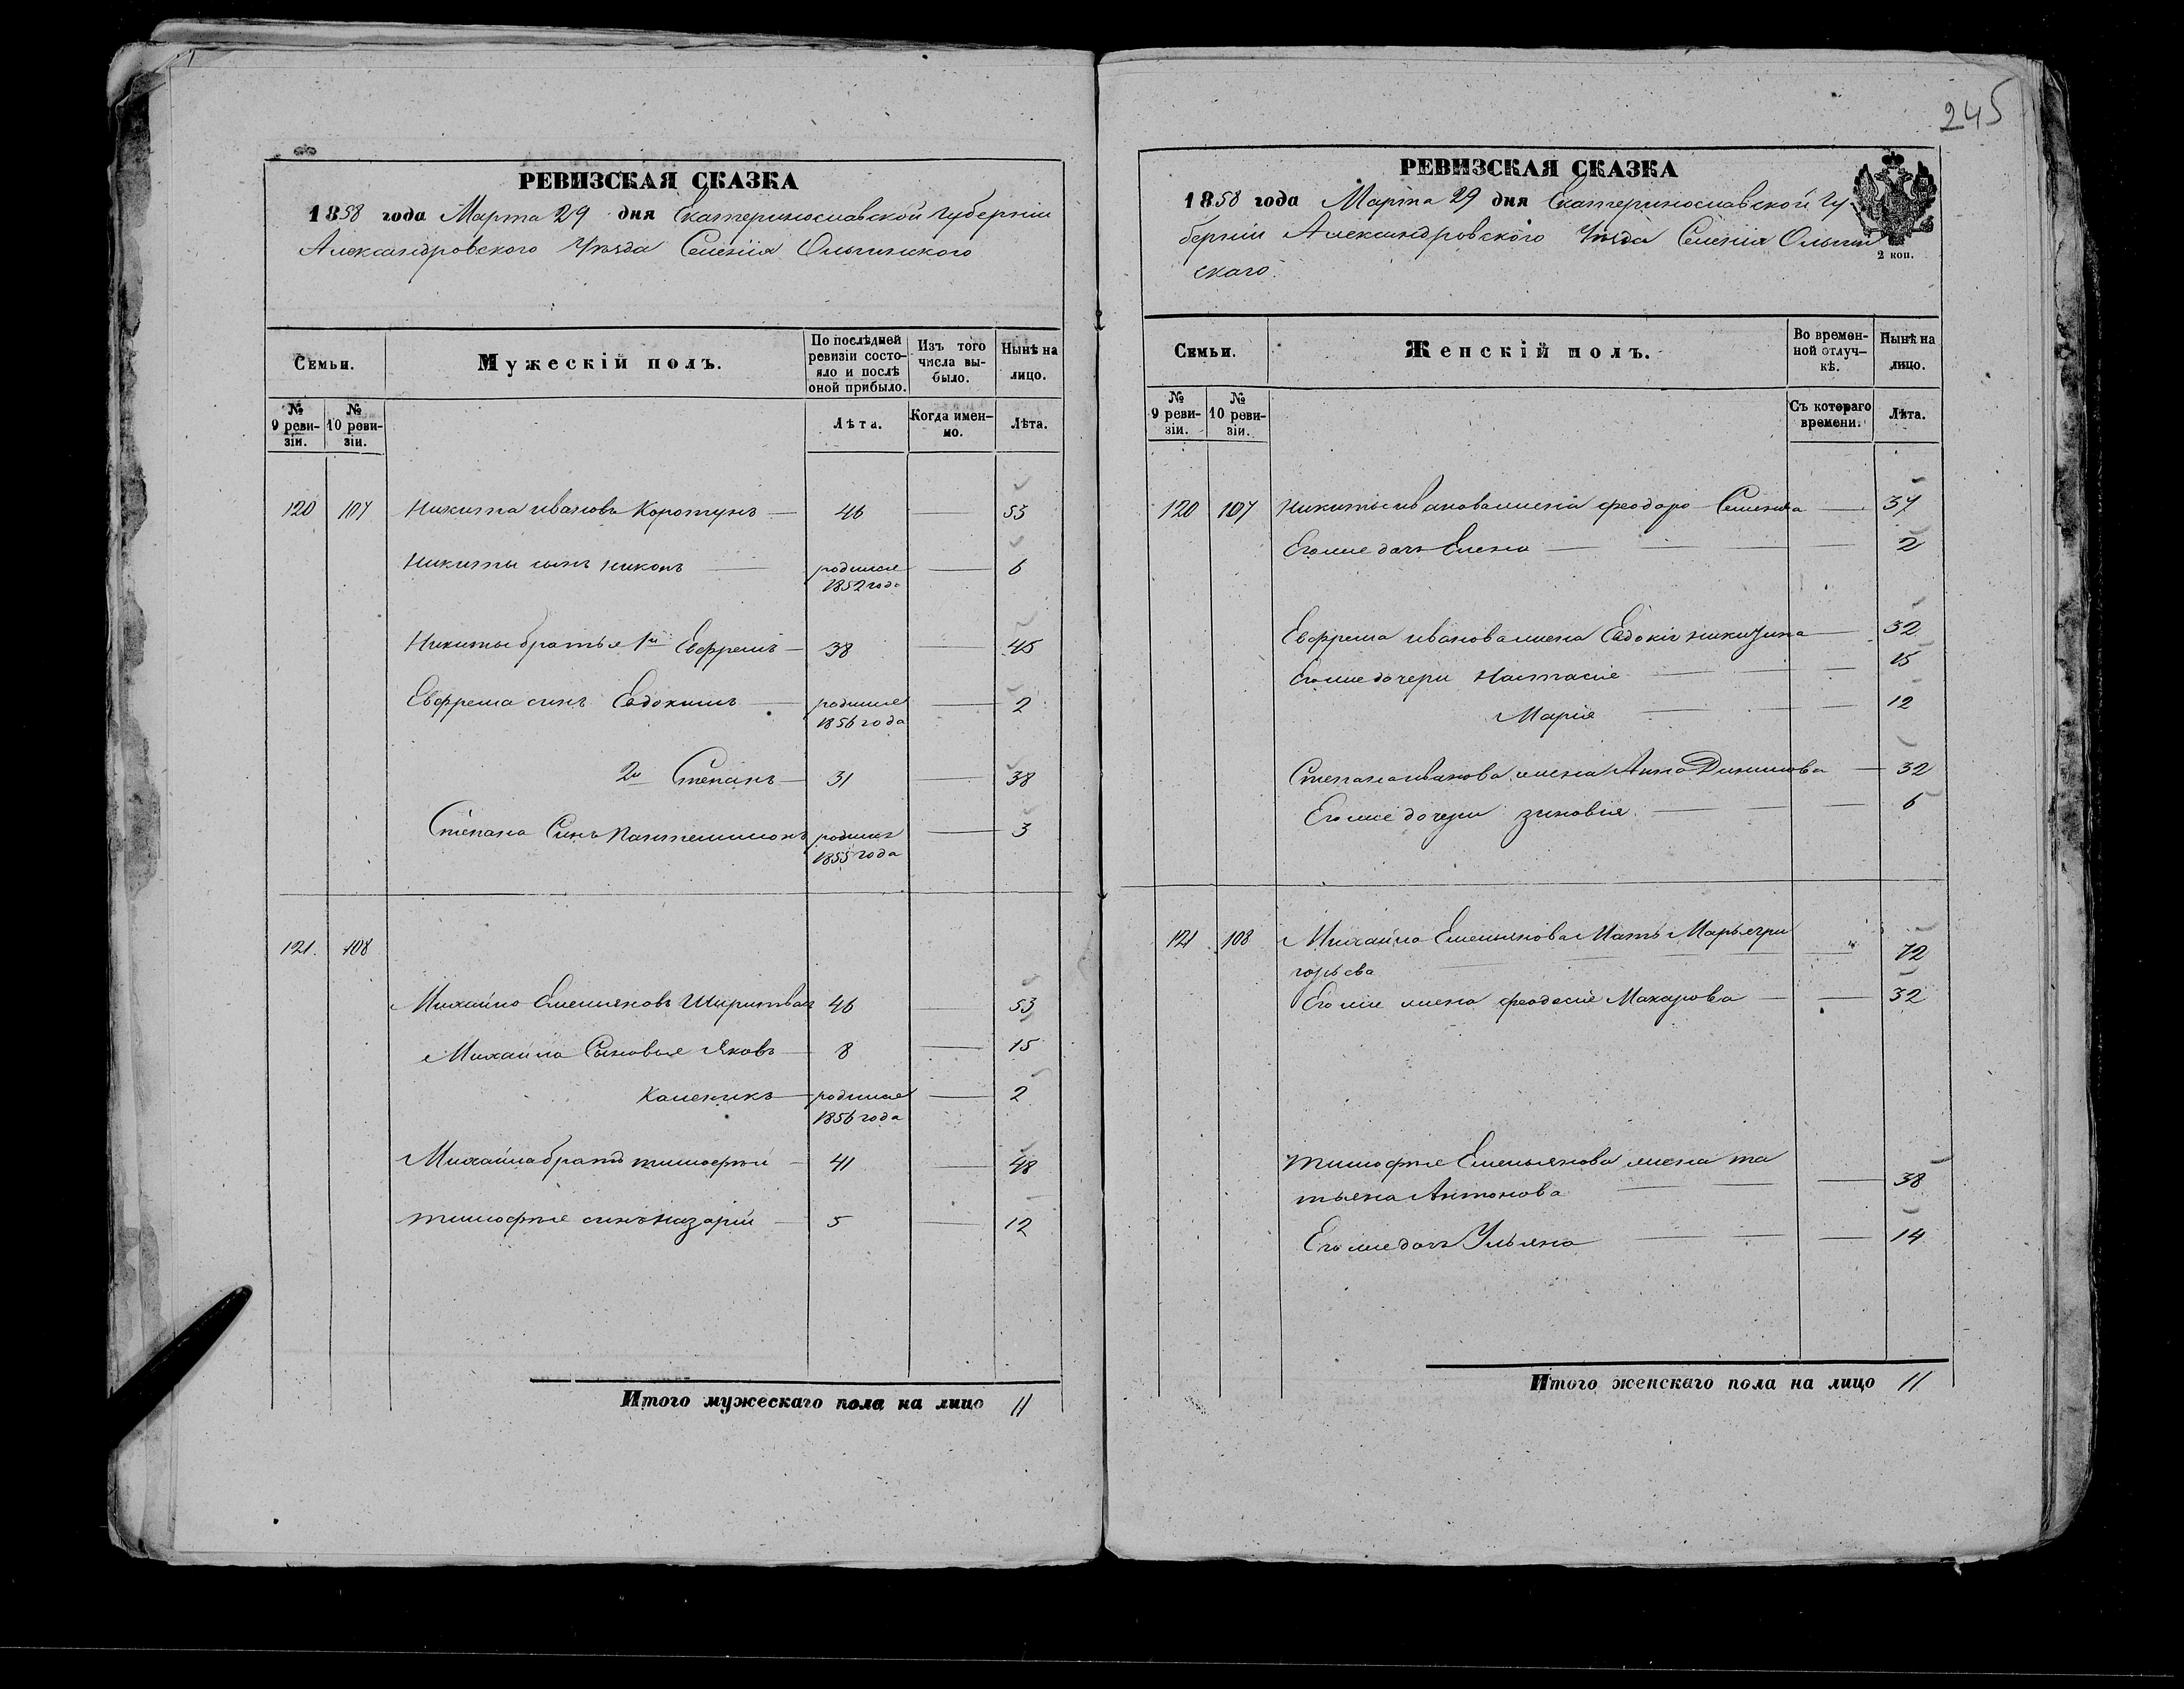 РЕВИЗСКАЯ СКАЗКА
1858 года Марта 29 дня Екатеринославской губерніи
Александровского Уѣзда Селенія Ольгинского
Семьи.
Мужескій полъ.
По послѣдней ревизіи состояло и послѣ оной прибыло.
Изъ того числа выбыло.
Нынѣ на лицо.
№ 9 ревизіи.
№ 10 ревизіи.
Лѣта.
Когда именно.
Лѣта.
120 107 Никита Ивановъ Коротунъ 46 53
Никиты сынъ Никонъ родился 1852 года 6
Никиты братья 1й Евфремъ 38 45
Евфрема синъ Евдокимъ родился 1856 года 2
2й Степанъ 31 38
Степана Синъ Пантелимонъ родился 1855 года 3
121. 108
Михайло Емельяновъ 46 53
Михайла Сыновья Яковъ 8 15
Каленикъ родился 1856 года 2
Михайла братъ тимофѣй 41 48
тимофѣя синъ Назарій 5 12
Итого мужескаго пола на лицо 11
245
РЕВИЗСКАЯ СКАЗКА
1858 года Марта 29 дня Екатеринославской Гу
берніи Александровского Уѣзда Селенія Ольгин
скаго.
2 коп.
Семьи.
Женскій полъ.
Во временной отлучкѣ.
Нынѣ на лицо.
№ 9 ревизіи.
№ 10 ревизіи.
Съ котораго времени.
Лѣта.
120 107 Никиты Иванова жена феодора Семенова 37
Егоже дочь Елена 2
Евфрема иванова жена Евдокія Никитина 32
Егоже дочери Настасія 15
Марія 12
Степана иванова жена Анна 32
Егоже дочери зиновія 6
121 108 Михайла Емельянова Мать Марья гри
горьева 72
Егоже жена феодосія Макарова 32
тимофѣя Емельянова жена та
тьяна Антонова 38
Егоже дочь Ульяна 14
Итого женскаго пола на лицо 11